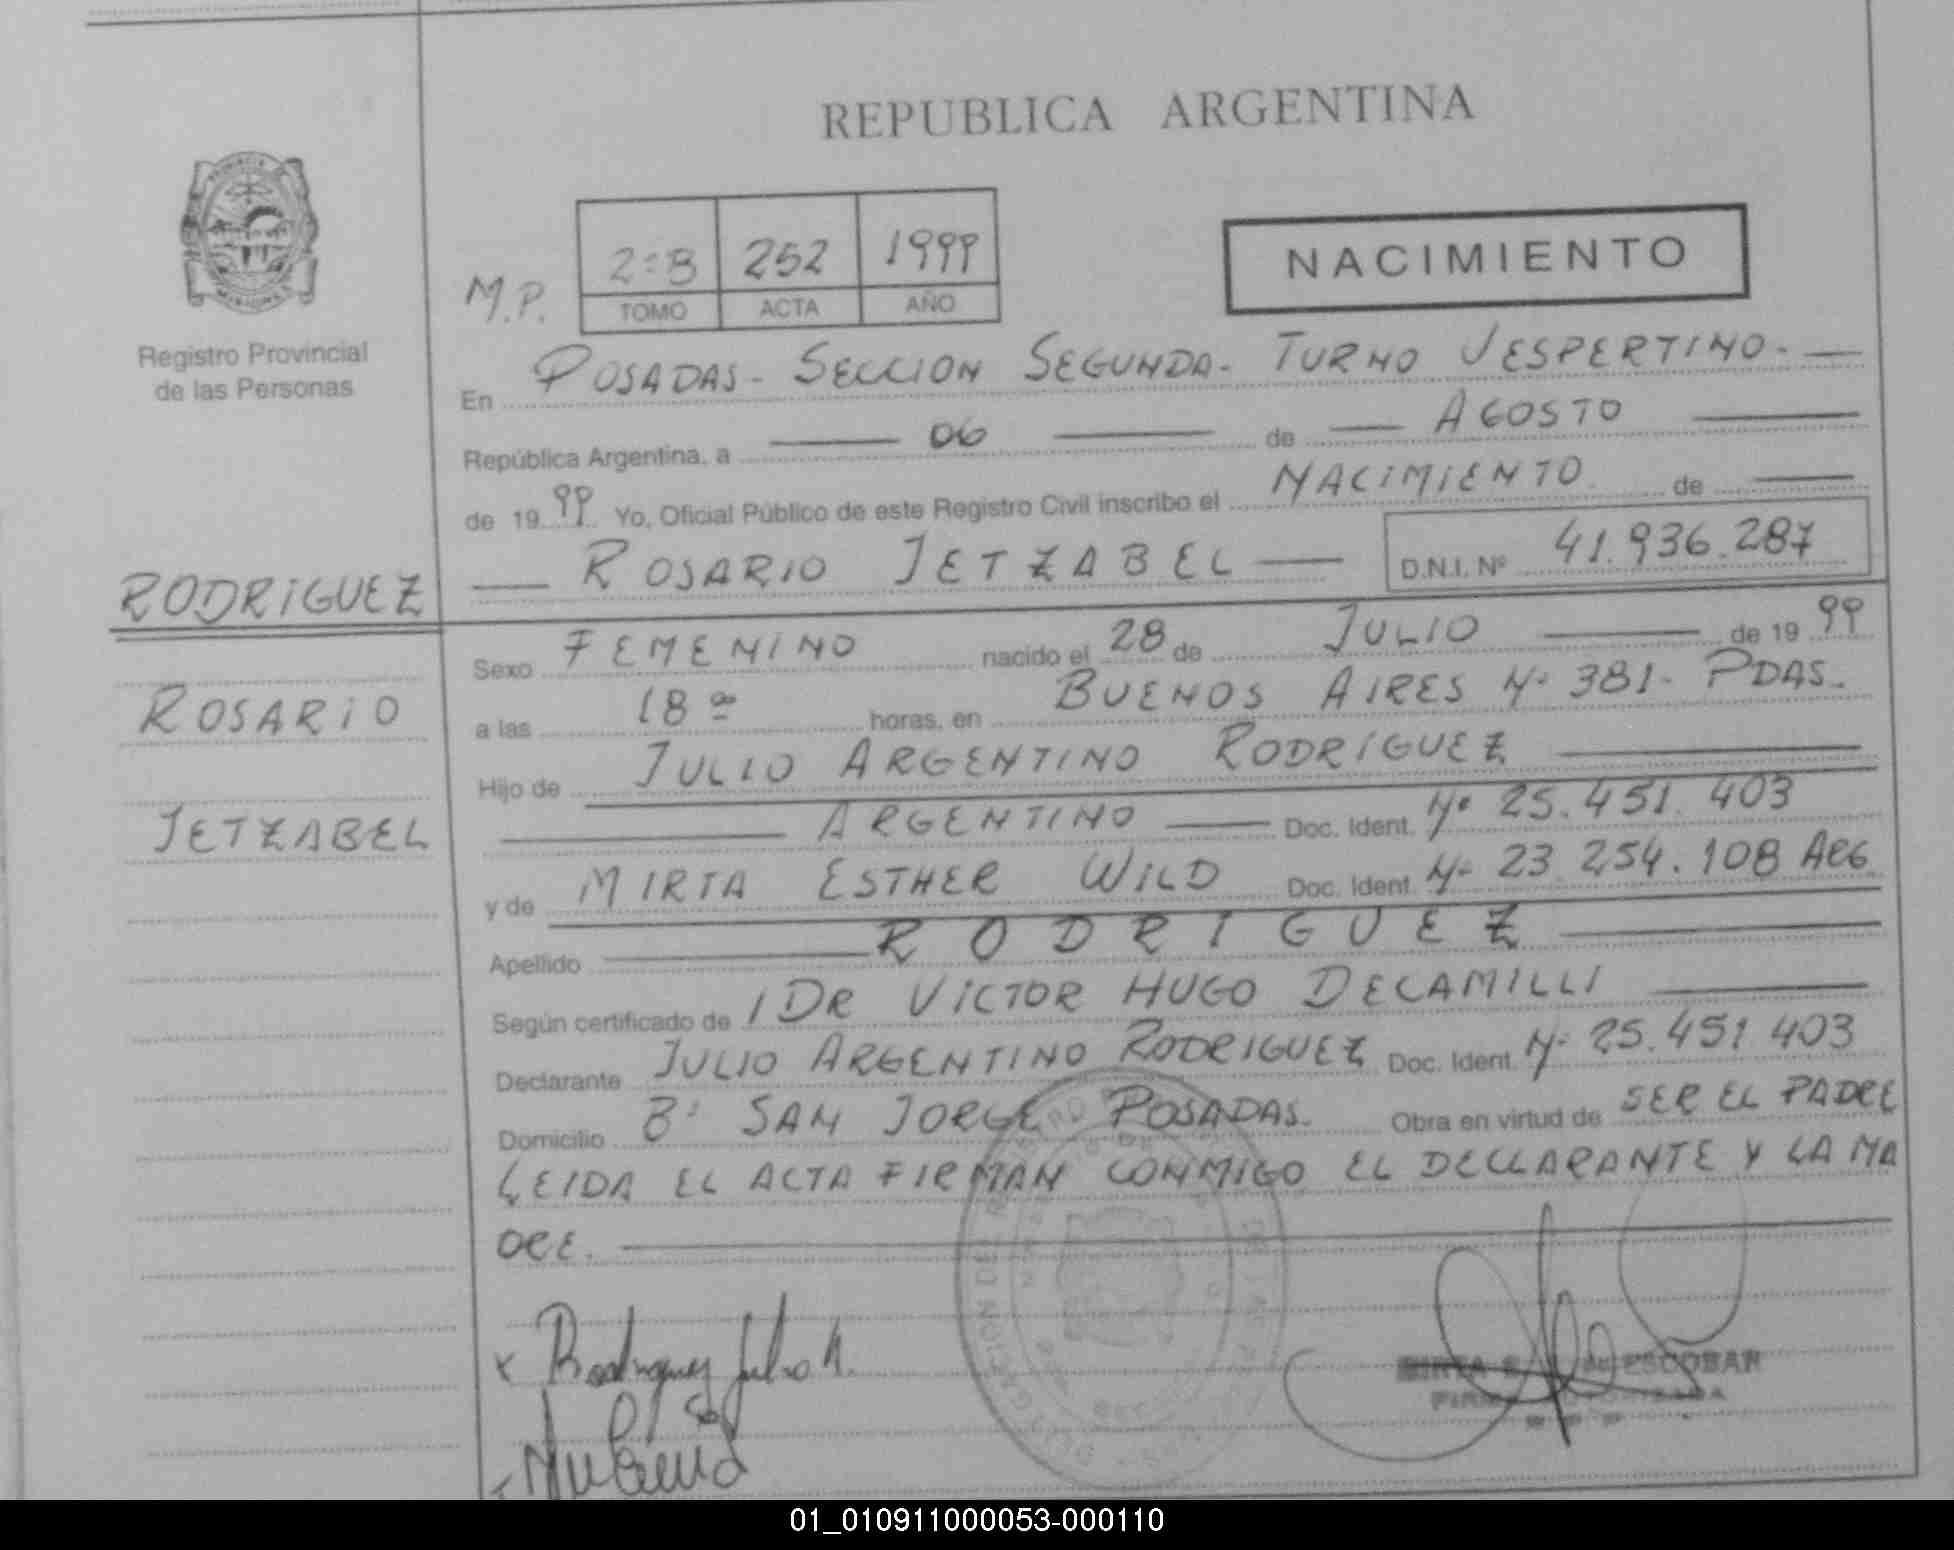 REPUBLICA ARGENTINA
M.P.
2:B 252 1999
TOMO ACTA AÑO
NACIMIENTO
Registro Provincial
de las Personas
En POSADAS - SECCION SEGUNDA - TURNO VESPERTINO. —
República Argentina, a — 06 — de — AGOSTO —
de 1999 Yo, Oficial Público de este Registro Civil inscribo el NACIMIENTO de —
— ROSARIO JETZABEL — D.N.I. Nº 41.936.287
RODRIGUEZ
ROSARIO
JETZABEL
Sexo FEMENINO nacido el 28 de JULIO — de 1999
a las 18 horas, en BUENOS AIRES Nº 381- PDAS.
Hijo de JULIO ARGENTINO RODRIGUEZ —
— ARGENTINO — Doc. Ident. Nº 25.451.403
y de MIRTA ESTHER WILD Doc. Ident. Nº 23.254.108 ARG
Apellido — RODRIGUEZ —
Según certificado de DR VICTOR HUGO DECAMILLI —
Declarante JULIO ARGENTINO RODRIGUEZ Doc. Ident. Nº 25.451 403
Domicilio Bº SAN JORGE POSADAS. Obra en virtud de SER EL PADRE
LEIDA EL ACTA FIRMAN CONMIGO EL DECLARANTE Y LA MA
DRE. —
x Rodriguez Julio A.
de ESCOBAR
01_010911000053-000110